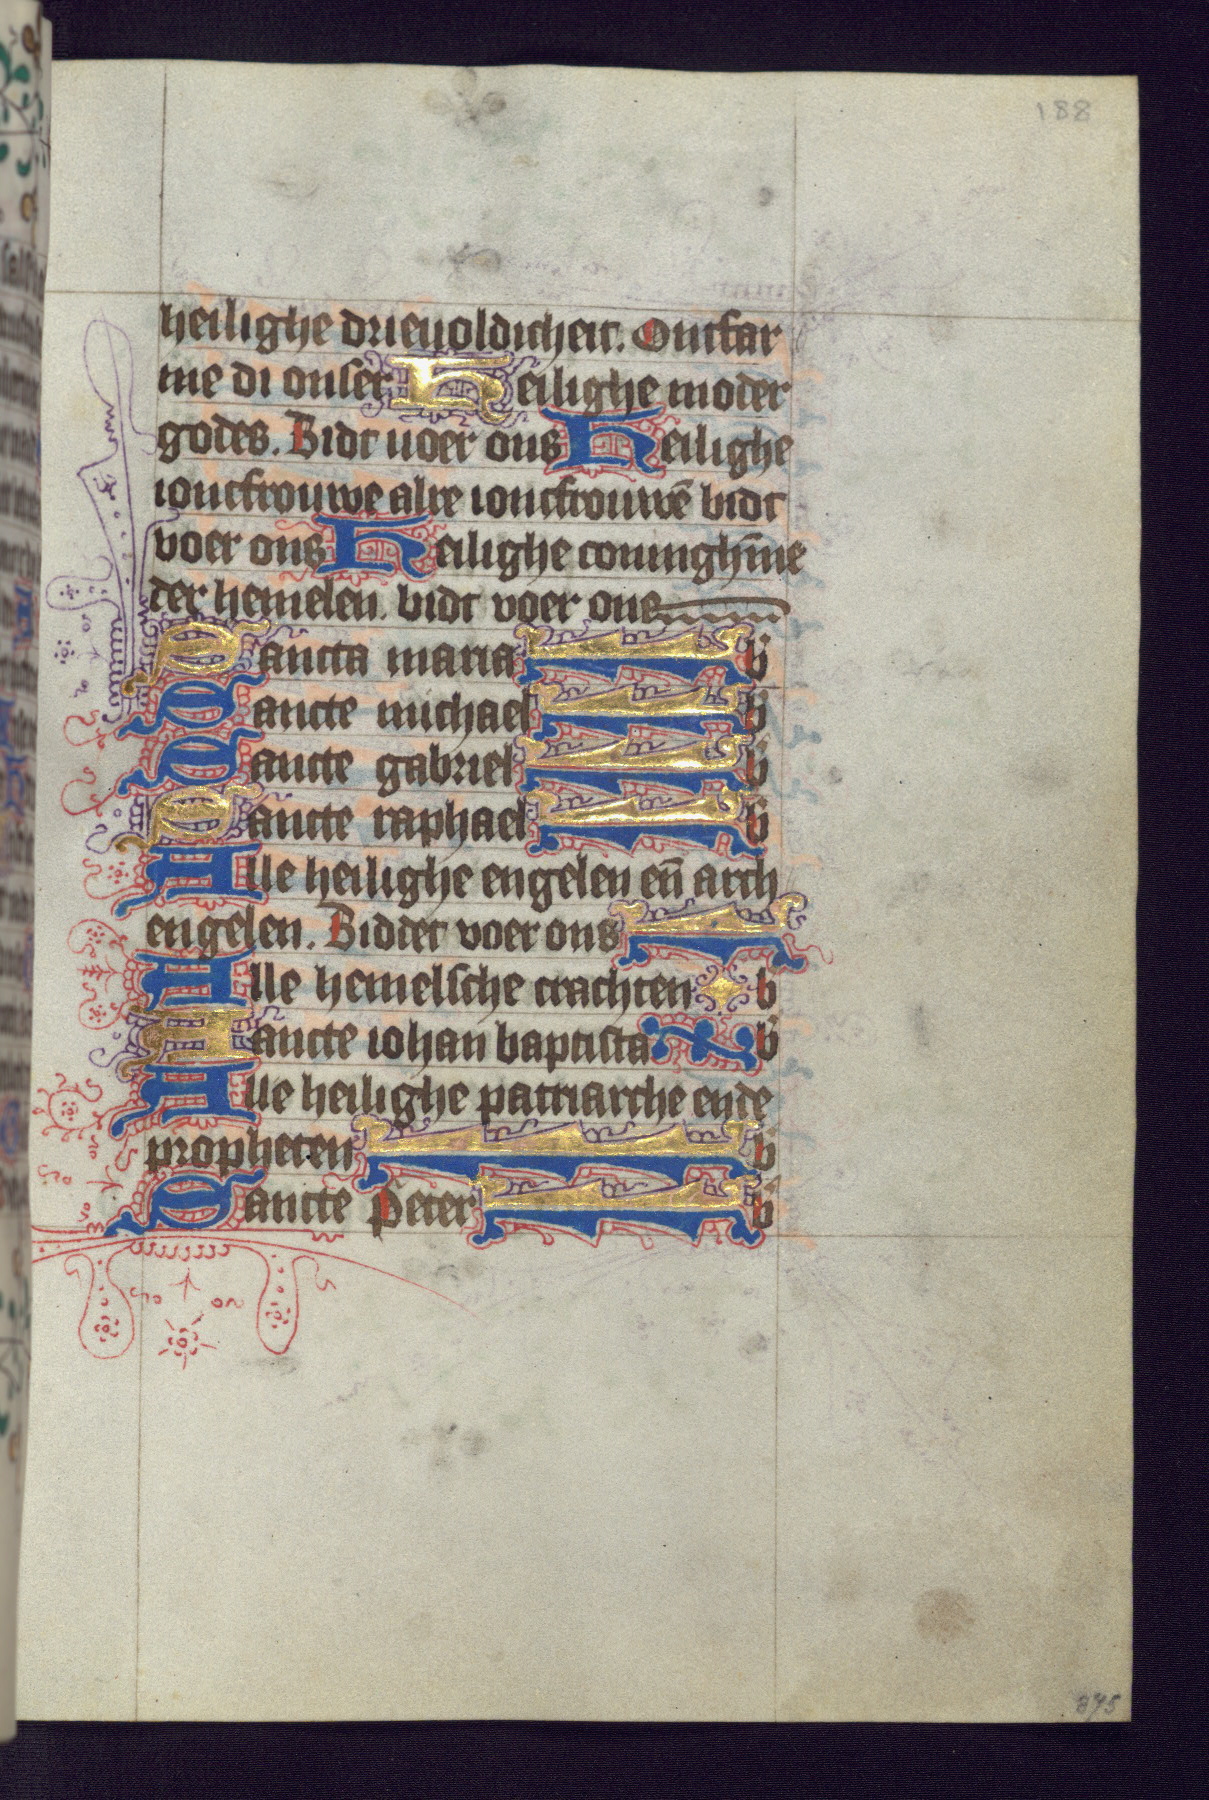 188
heilighe drieuoldicheit. Ontfar
me di onser Heilighe moder
godes. Bidt uoer ons Heilighe
ioncfrouwe alre ioncfrouwē bidt
voer ons Heilighe coningh̄ine
der hemelen. bidt voer ons
Sancta maria b
Sancte michael b
Sancte gabriel b
Sancte raphael b
Alle heilighe engelen en̄ arch
engelen. Biddet voer ons
Alle hemelsche crachten b
Sancte iohan baptista b
Alle heilighe patriarche ende
propheten b
Sancte Peter b